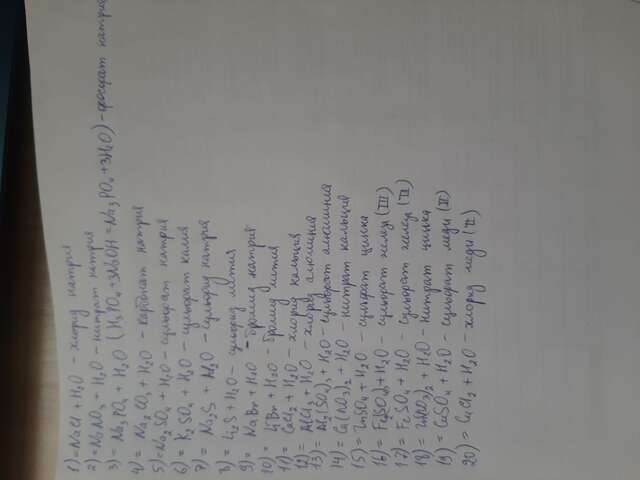 1) = NaCl + H2O - хлорид натрия
2) = NaNO3 + H2O - нитрат натрия
3) = Na3PO4 + H2O (H3PO4 + 3NaOH = Na3PO4 + 3H2O) - фосфат натрия
4) = Na2CO3 + H2O - карбонат натрия
5) = Na2SO4 + H2O - сульфат натрия
6) = K2SO4 + H2O - сульфат калия
7) = Na2S + H2O - сульфид натрия
8) = Li2S + H2O - сульфид лития
9) = NaBr + H2O - бромид натрия
10) = LiBr + H2O - бромид лития
11) = CaCl2 + H2O - хлорид кальция
12) = AlCl3 + H2O - хлорид алюминия
13) = Al2(SO4)3 + H2O - сульфат алюминия
14) = Ca(NO3)2 + H2O - нитрат кальция
15) = ZnSO4 + H2O - сульфат цинка
16) = + H2O - сульфат железа (III)
17) = FeSO4 + H2O - сульфат железа
18) = + H2O - нитрат цинка
19) = CuSO4 + H2O - сульфат меди (II)
20) = CuCl2 + H2O - хлорид меди (II)